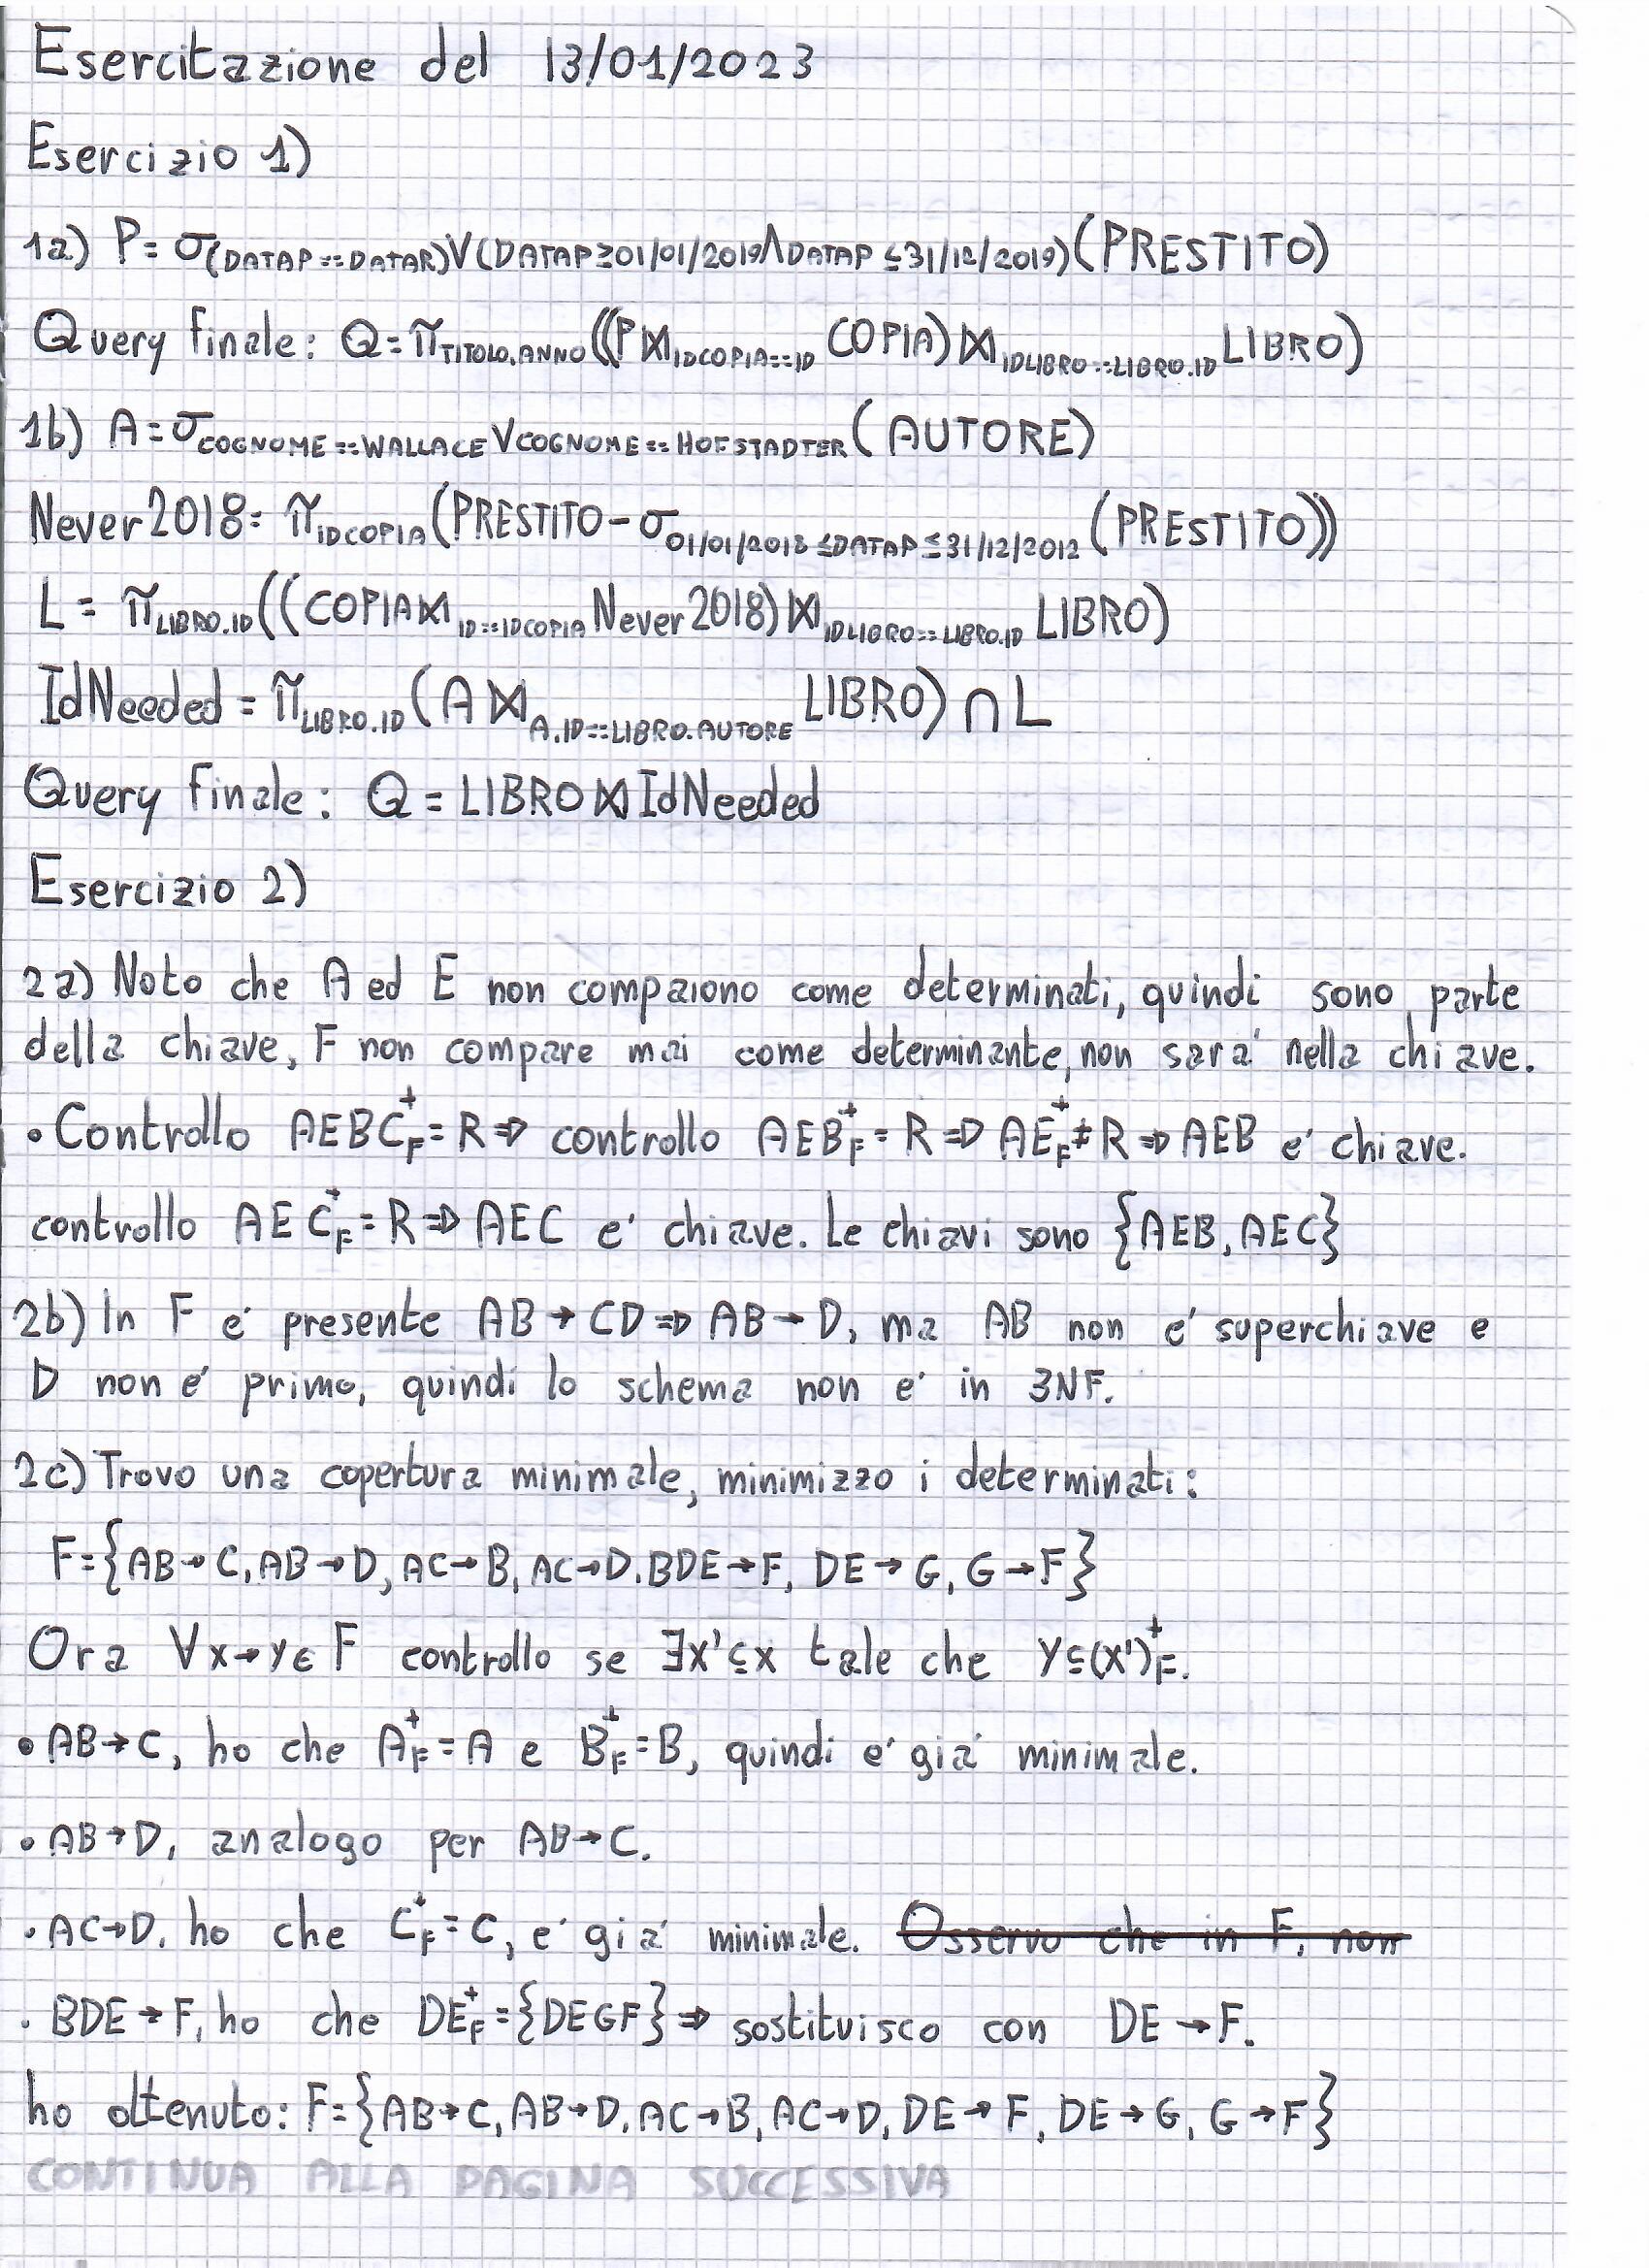 Esercitazione del 13/01/2023
Esercizio 1)
1a) P= σ(DATAP==DATAR)V(DATAP≥01/01/2019ΛDATAP≤31/12/2019)(PRESTITO)
Query finale: Q=πTITOLO,ANNO((P⋈IDCOPIA==ID COPIA)⋈IDLIBRO==LIBRO.ID LIBRO)
1b) A=σCOGNOME==WALLACE V COGNOME==HOFSTADTER(AUTORE)
Never2018= πIDCOPIA(PRESTITO-σ01/01/2018≤DATAP≤31/12/2012(PRESTITO))
L = πLIBRO.ID((COPIA⋈ID==IDCOPIA Never2018)⋈IDLIBRO==LIBRO.ID LIBRO)
IdNeeded = πLIBRO.ID(A⋈A.ID==LIBRO.AUTORE LIBRO)∩L
Query finale: Q = LIBRO⋈IdNeeded
Esercizio 2)
2a) Noto che A ed E non compaiono come determinati, quindi sono parte
della chiave, F non compare mai come determinante, non sara' nella chiave.
• Controllo AEBC⁺F = R ⇒ controllo AEB⁺F = R ⇒ AE⁺F ≠ R ⇒ AEB e' chiave.
controllo AEC⁺F = R ⇒ AEC e' chiave. Le chiavi sono {AEB, AEC}
2b) In F e' presente AB → CD ⇒ AB → D, ma AB non e' superchiave e
D non e' primo, quindi lo schema non e' in 3NF.
2c) Trovo una copertura minimale, minimizzo i determinati:
F={AB→C, AB→D, AC→B, AC→D, BDE→F, DE→G, G→F}
Ora ∀x→y∈F controllo se ∃x'⊆x tale che y⊆(x')⁺F.
• AB→C, ho che A⁺F=A e B⁺F=B, quindi e' gia' minimale.
• AB→D, analogo per AB→C.
• AC→D, ho che C⁺F=C, e' gia' minimale. Osservo che in F, non
• BDE→F, ho che DE⁺F={DEGF} ⇒ sostituisco con DE→F.
ho ottenuto: F={AB→C, AB→D, AC→B, AC→D, DE→F, DE→G, G→F}
CONTINUA ALLA PAGINA SUCCESSIVA